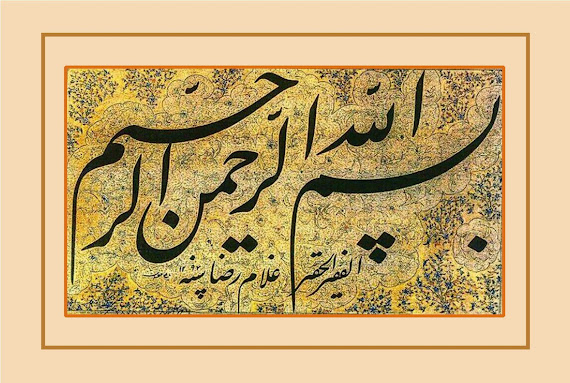 بسم الله الرحمن الرحیم
الفقیر الحقیر غلام رضا